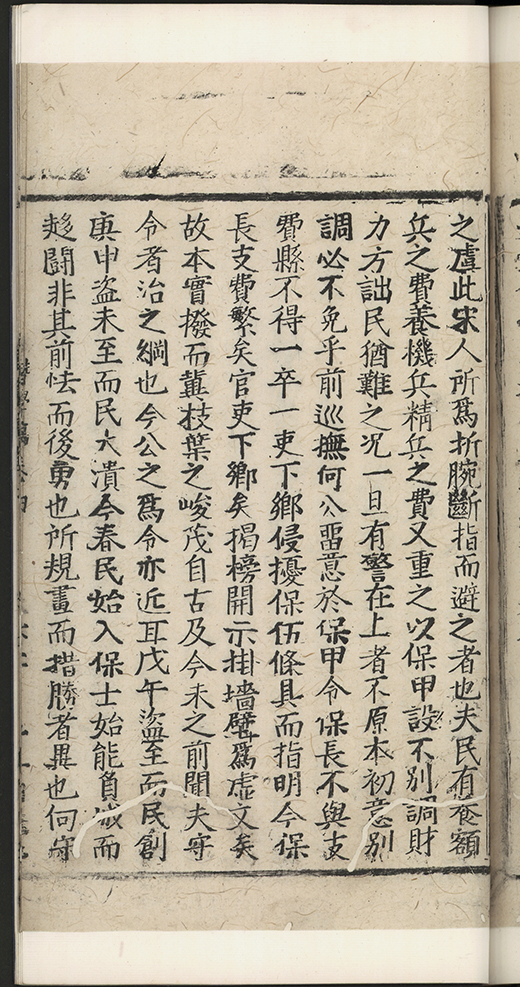 之虐此宋人所爲折腕斷指而避之者也夫民有養額
兵之費養機兵精兵之費又重之以保甲設不別調財
力方詘民猶難之况一旦有警在上者不原本初意别
調必不免乎前巡撫何公畱意於保甲令保長不與支
費縣不得一卒一吏下鄉侵擾保伍條具而指明今保
長支費繁矣官吏下鄉矣揭榜開示掛墻壁爲虛文矣
故本實撥而冀枝葉之峻茂自古及今未之前聞夫守
令者治之綱也今公之爲令亦近耳戊午盜至而民創
庚申盜未至而民大潰今春民始入保士始能負城而
趍鬪非其前怯而後勇也所規畫而措勝者異也何守